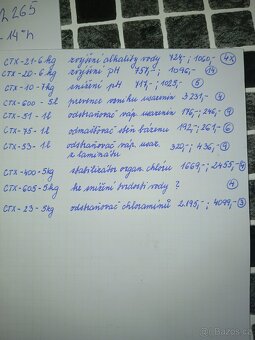 2265
-14°h
CTX-21-6kg zvýšení alkality vody 724,-; 1060,- 4x
CTX-20-6kg zvýšení pH 757,-; 1096,- 14
CTX-10-7kg snížení pH 717,-; 1025,- 5
CTX-600-5l prevence vzniku usazenin 3231,- 4
CTX-51-1l odstraňovač váp. usazenin 176,-; 246,- 9
CTX-75-1l odmašťovač stěn bazénu 192,-; 261,- 6
CTX-53-1l odstraňovač váp. usaz. 320,-; 436,- 9
z laminátu
CTX-400-5kg stabilizátor organ. chlóru 1669,-; 2455,- 4
CTX-605-5kg ke snížení tvrdosti vody ? 4
CTX-23-5kg odstraňovač chloraminů 2.195,-; 4099,- 3
Sbazar.cz